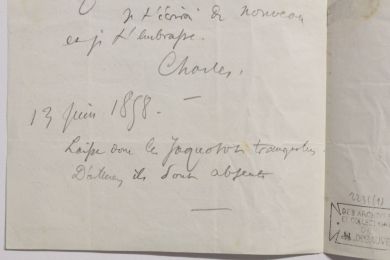 je t'écrirai de nouveau
et je t'embrasse.
Charles.
13 juin 1858.
Laisse donc les Jaquotot tranquilles.
D'ailleurs ils sont absents
2231(1)
DES ARCHIVES
ET COLLECTIONS
DE